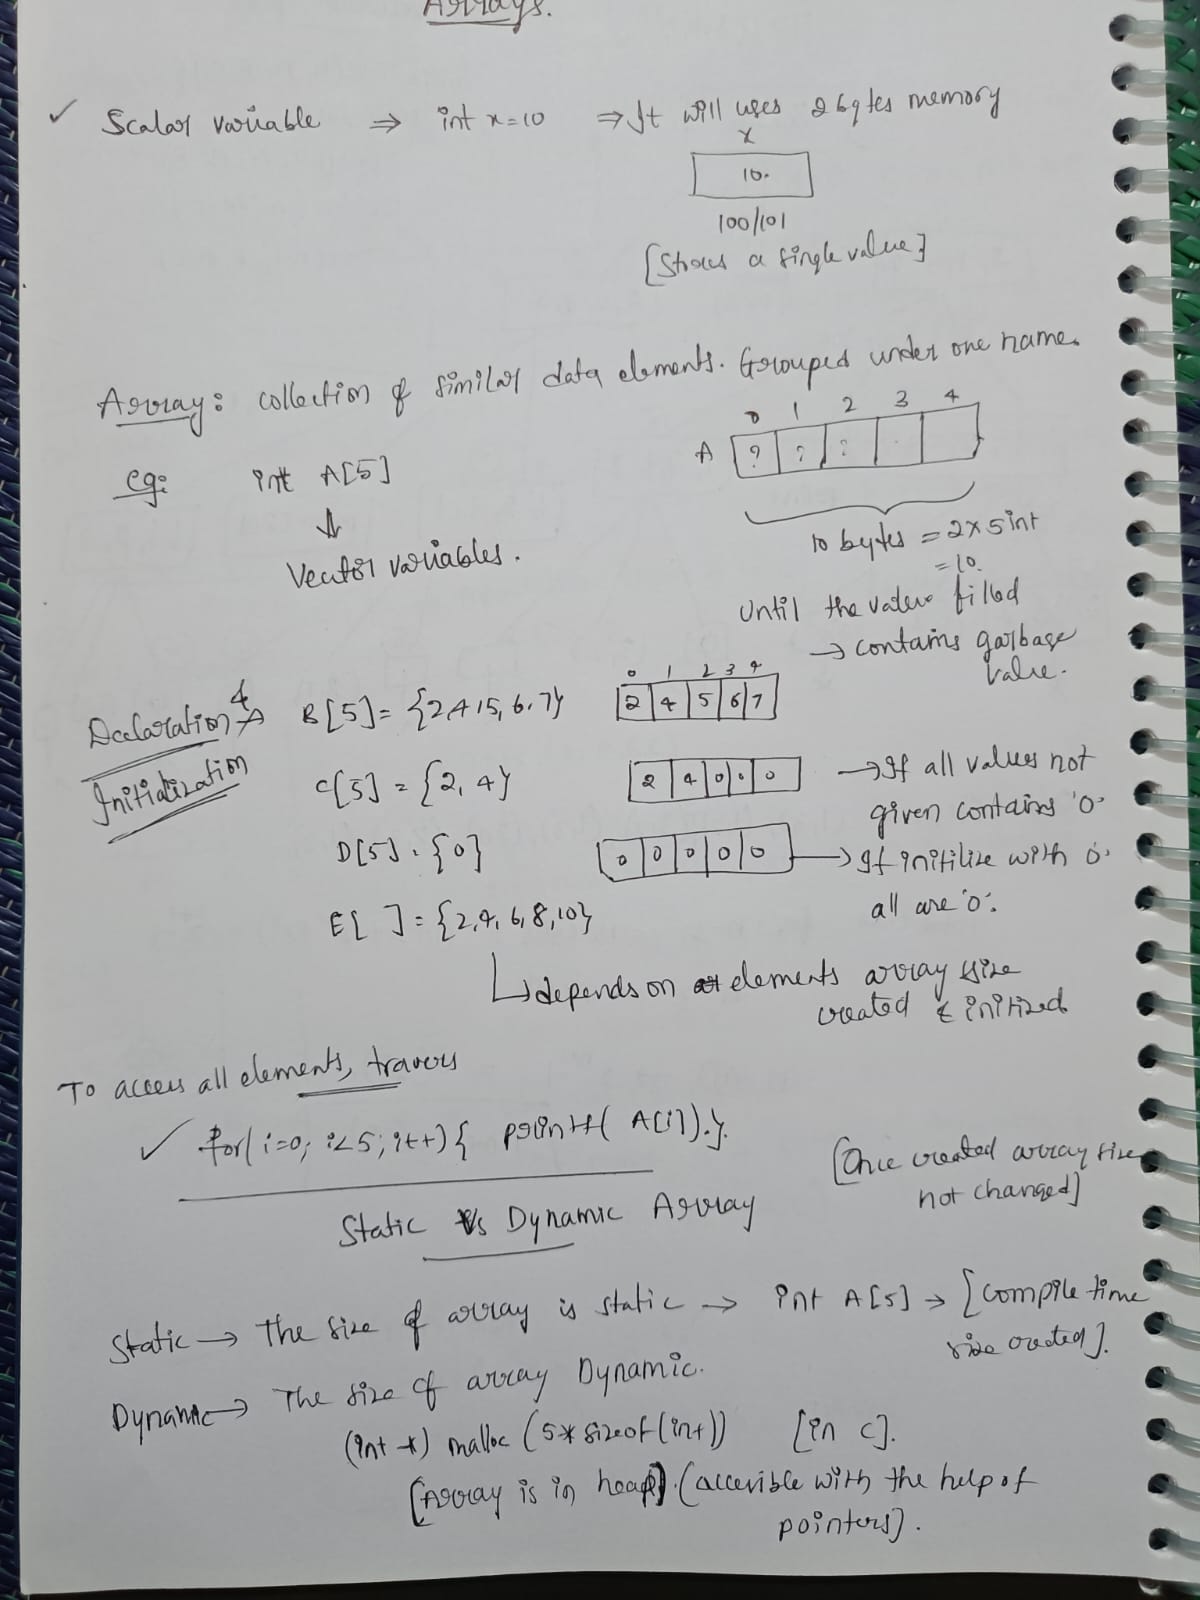 Arrays.
✓ Scalar variable ⇒ int x=10 ⇒ It will uses 2 bytes memory
x
10.
100/101
[Stores a single value]
Array: collection of similar data elements. Grouped under one name.
0 1 2 3 4
A ? ? ?
eg: int A[5]
⇓
Vector variables.
10 bytes = 2×5 int
= 10.
Until the values filled
→ contains garbage
value.
0 1 2 3 4
Declaration & B[5]= {2,4,5,6,7} 2 4 5 6 7
Initialization
C[5] = {2, 4} 2 4 0 0 0 → If all values not
given contains '0'
D[5] = {0} 0 0 0 0 0 → If initilize with 0.
all are '0'.
E[ ] = {2,4,6,8,10}
↳ depends on elements array size
created & initized
To access all elements, travers
✓ for(i=0; i<5; i++){ printf( A[i]).}.
[Once created array size
not changed]
Static Vs Dynamic Array
Static → The size of array is static → int A[5] → [compile time
size created].
Dynamic → The size of array Dynamic.
(int *) malloc (5* sizeof(int)) [in c].
[Array is in heap]. (accesible with the help of
pointers].